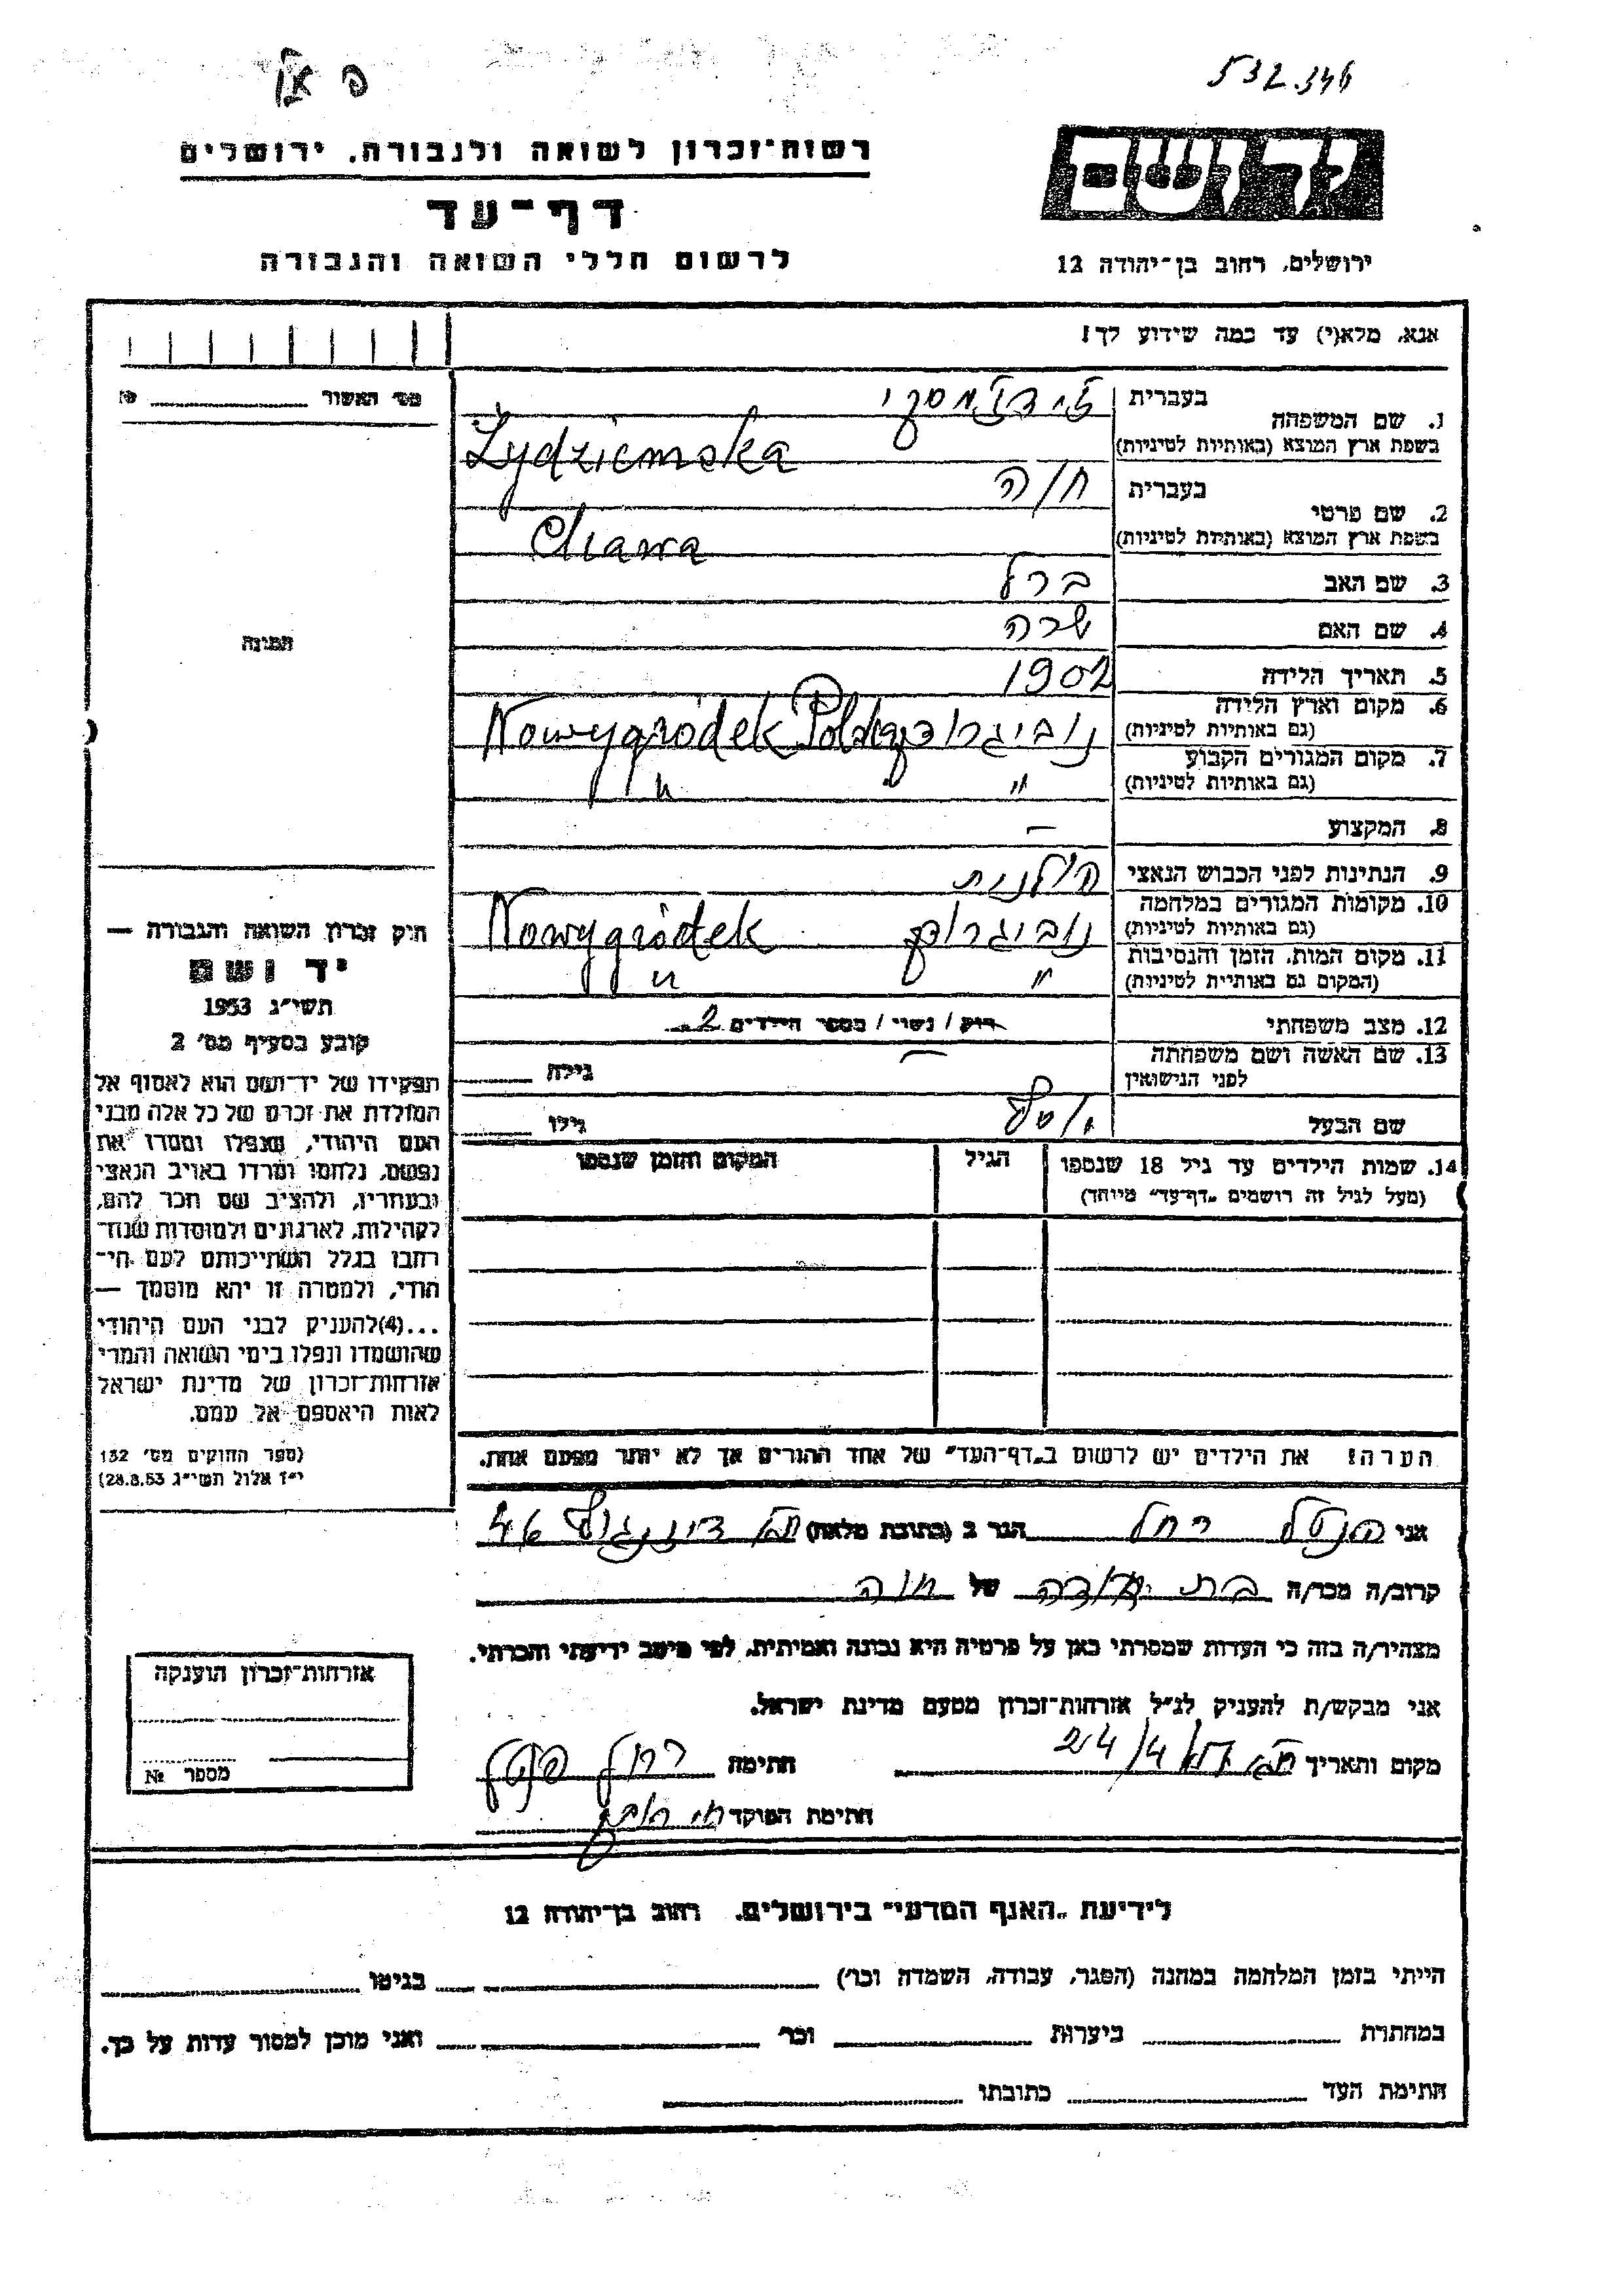 532.346
רשות-זכרון לשואה ולגבורה. ירושלים
דף-עד
לרשום חללי השואה והגבורה
יד ושם
ירושלים, רחוב בן-יהודה 12
אנא, מלא(י) עד כמה שידוע לך!
מס' האשור №
1. שם המשפחה
בעברית
בשפת ארץ המוצא (באותיות לטיניות)
Żydziemska
2. שם פרטי
בעברית חוה
בשפת ארץ המוצא (באותיות לטיניות) Chawa
3. שם האב ברל
4. שם האם שרה
5. תאריך הלידה 1902
6. מקום וארץ הלידה
(גם באותיות לטיניות) נוביגרודק Nowygródek Polska
7. מקום המגורים הקבוע
(גם באותיות לטיניות) " "
8. המקצוע —
9. הנתינות לפני הכבוש הנאצי פולנית
10. מקומות המגורים במלחמה
(גם באותיות לטיניות) נוביגרודק Nowygródek
11. מקום המות, הזמן והנסיבות
(המקום גם באותיות לטיניות) " "
12. מצב משפחתי רוק / נשוי / מספר הילדים 2
13. שם האשה ושם משפחתה
לפני הנישואין — גילה
שם הבעל גילו
14. שמות הילדים עד גיל 18 שנספו
(מעל לגיל זה רושמים "דף-עד" מיוחד)
הגיל
המקום והזמן שנספו
הערה! את הילדים יש לרשום ב"דף-העד" של אחד ההורים אך לא יותר מפעם אחת.
תמונה
חוק זכרון השואה והגבורה —
יד ושם
תשי"ג 1953
קובע בסעיף מס' 2
תפקידו של יד-ושם הוא לאסוף אל
המולדת את זכרם של כל אלה מבני
העם היהודי, שנפלו ומסרו את
נפשם, נלחמו ומרדו באויב הנאצי
ובעוזריו, ולהציב שם וזכר להם,
לקהילות, לארגונים ולמוסדות שנח-
רבו בגלל השתייכותם לעם הי-
הודי, ולמטרה זו יהא מוסמך —
...(4) להעניק לבני העם היהודי
שהושמדו ונפלו בימי השואה והמרי
אזרחות-זכרון של מדינת ישראל
לאות היאספם אל עמם.
(ספר החוקים מס' 132
י"ז אלול תשי"ג 28.8.53)
אני רחל הגר ב (כתובת מלאה) ת"א דיזנגוף 46
קרוב/ה מכר/ה בת דודה של חוה
מצהיר/ה בזה כי העדות שמסרתי כאן על פרטיה היא נכונה ואמיתית, לפי מיטב ידיעתי והכרתי.
אני מבקש/ת להעניק לנ"ל אזרחות-זכרון מטעם מדינת ישראל.
מקום ותאריך 24/4 חתימה רחל
חתימת הפוקד
אזרחות-זכרון הוענקה
מספר №
לידיעת "האגף המדעי" בירושלים. רחוב בן-יהודה 12
הייתי בזמן המלחמה במחנה (הסגר, עבודה, השמדה וכו') בגיטו
במחתרת ביערות וכו' ואני מוכן למסור עדות על כך.
חתימת העד כתובתו